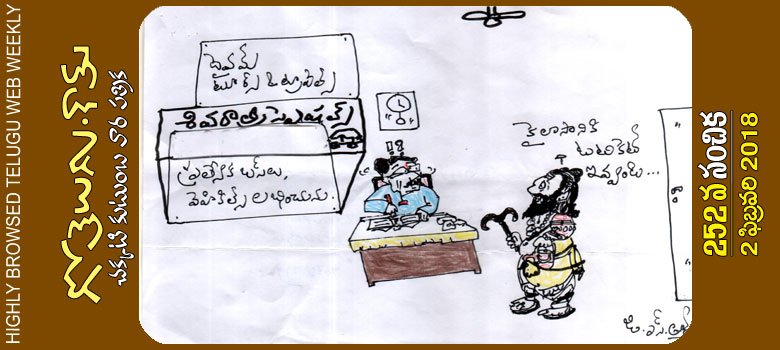 HIGHLY BROWSED TELUGU WEB WEEKLY
గోతెలుగు.కామ్
చక్కటి కుటుంబ వార పత్రిక
దైవమ్
టూర్స్ & ట్రావెల్స్
శివరాత్రి స్పెషల్స్
ప్రత్యేక బస్‌లు,
వెహికిల్స్ లభించును.
కైలాసానికి
టికెట్
ఇవ్వండి...
252 వ సంచిక
2 ఫిబ్రవరి 2018